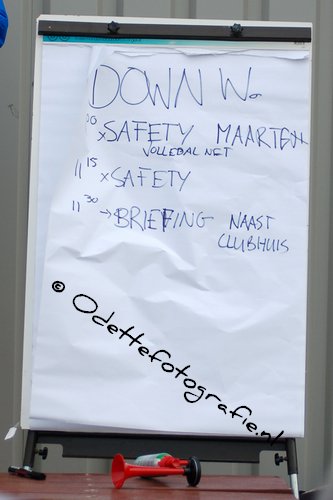 DOWN W.
00 x SAFETY MAARTEN
VOLLEBAL NET
11 15 x SAFETY
11 30 → BRIEFING NAAST
CLUBHUIS
© Odettefotografie.nl